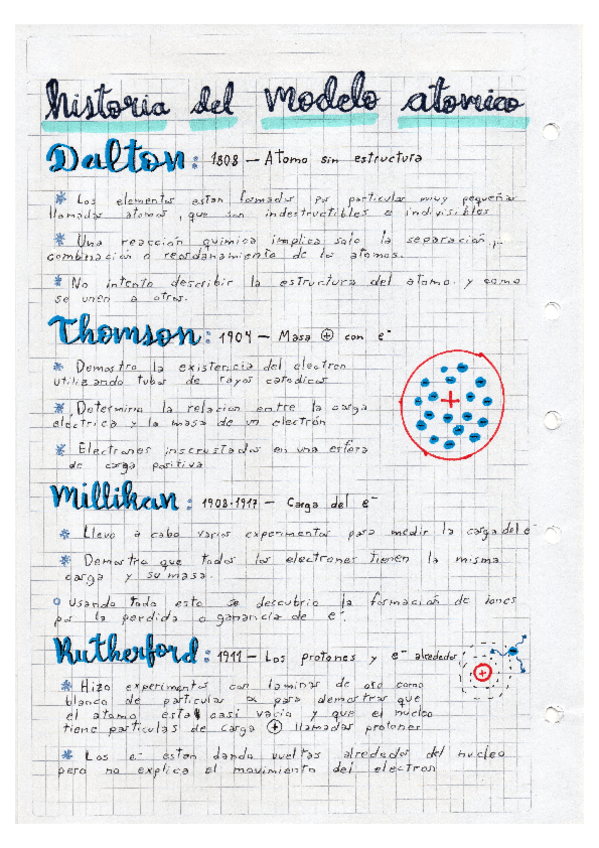 historia del Modelo atomico
Dalton: 1808 – Atomo sin estructura
* Los elementos estan formados por particulas muy pequeñas
llamadas atomos, que son indestructibles e indivisibles
* Una reacción quimica implica solo la separación,
combinación o reordanamiento de los atomos.
* No intento describir la estructura del atomo y como
se unen a otros.
Thomson: 1904 – Masa ⊕ con e⁻
* Demostro la existencia del electron
utilizando tubos de rayos catodicos
* Determino la relacion entre la carga
eléctrica y la masa de un electrón
* Electrones inscrustados en una esfera
de carga positiva
+
Millikan: 1908-1917 – Carga del e⁻
* Llevo a cabo varios experimentos para medir la carga del e⁻
* Demostro que todos los electrones tienen la misma
carga y su masa.
o Usando todo esto se descubrio la formación de iones
por la perdida o ganancia de e⁻.
Rutherford: 1911 – Los protones y e⁻ alrededor
* Hizo experimentos con laminas de oro como
blanco de particulas α para demostrar que
el atomo esta casi vacio y que el nucleo
tiene particulas de carga ⊕ llamadas protones
+
* Los e⁻ estan dando vueltas alrededor del nucleo
pero no explica el movimiento del electron